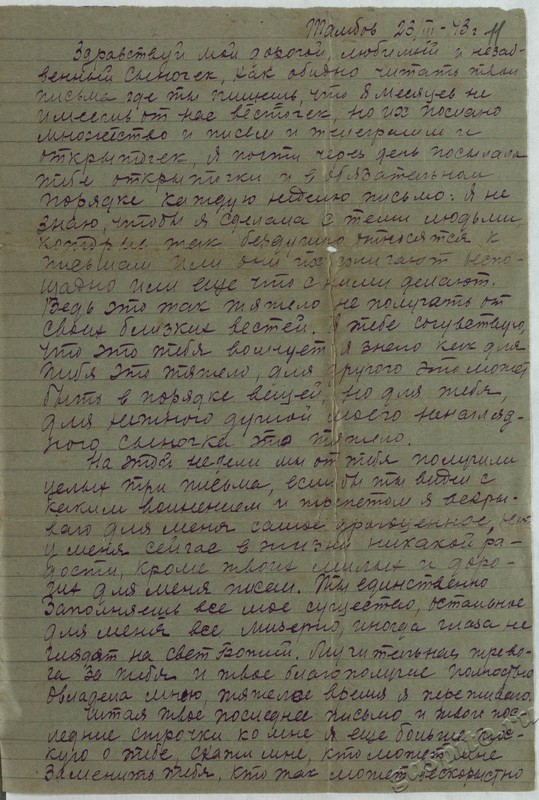 Тамбов 23/III-43 г.
Здравствуй мой дорогой, любимый и незаб-
венный сыночек, как обидно читать твои
письма где ты пишешь, что 8 месяцев не
имеешь от нас весточек, но их послано
множество и писем и телеграмм и
открыточек, я почти через день посылала
тебе открытки и в обязательном
порядке каждую неделю письмо. Я не
знаю, чтобы я сделала с теми людьми
которые так бездушно относятся к
письмам или они их сжигают беспо-
щадно или еще что с ними делают.
Ведь это так тяжело не получать от
своих близких вестей. Я тебе сочувствую,
что это тебя волнует, я знаю как для
тебя это тяжело, для другого это может
быть в порядке вещей, но для тебя,
для нежного душой моего ненагляд-
ного сыночка это тяжело.
На этой недели мы от тебя получили
целых три письма, если бы ты видел с
каким волнением и трепетом я вскры-
ваю для меня самое драгоценное,
у меня сейчас в жизни никакой ра-
дости, кроме твоих милых и доро-
гих для меня писем. Ты единственно
заполняешь все мое существо, остальное
для меня все мизерно, иногда глаза не
глядят на свет Божий. Мучительная трево-
га за тебя и твое благополучие полностью
овладела мною, тяжелое время я переживаю.
Читая твое последнее письмо и твои пос-
ледние строчки ко мне я еще больше тос-
кую о тебе, скажи мне, кто может мне
заменить тебя, кто так может бескорыстно